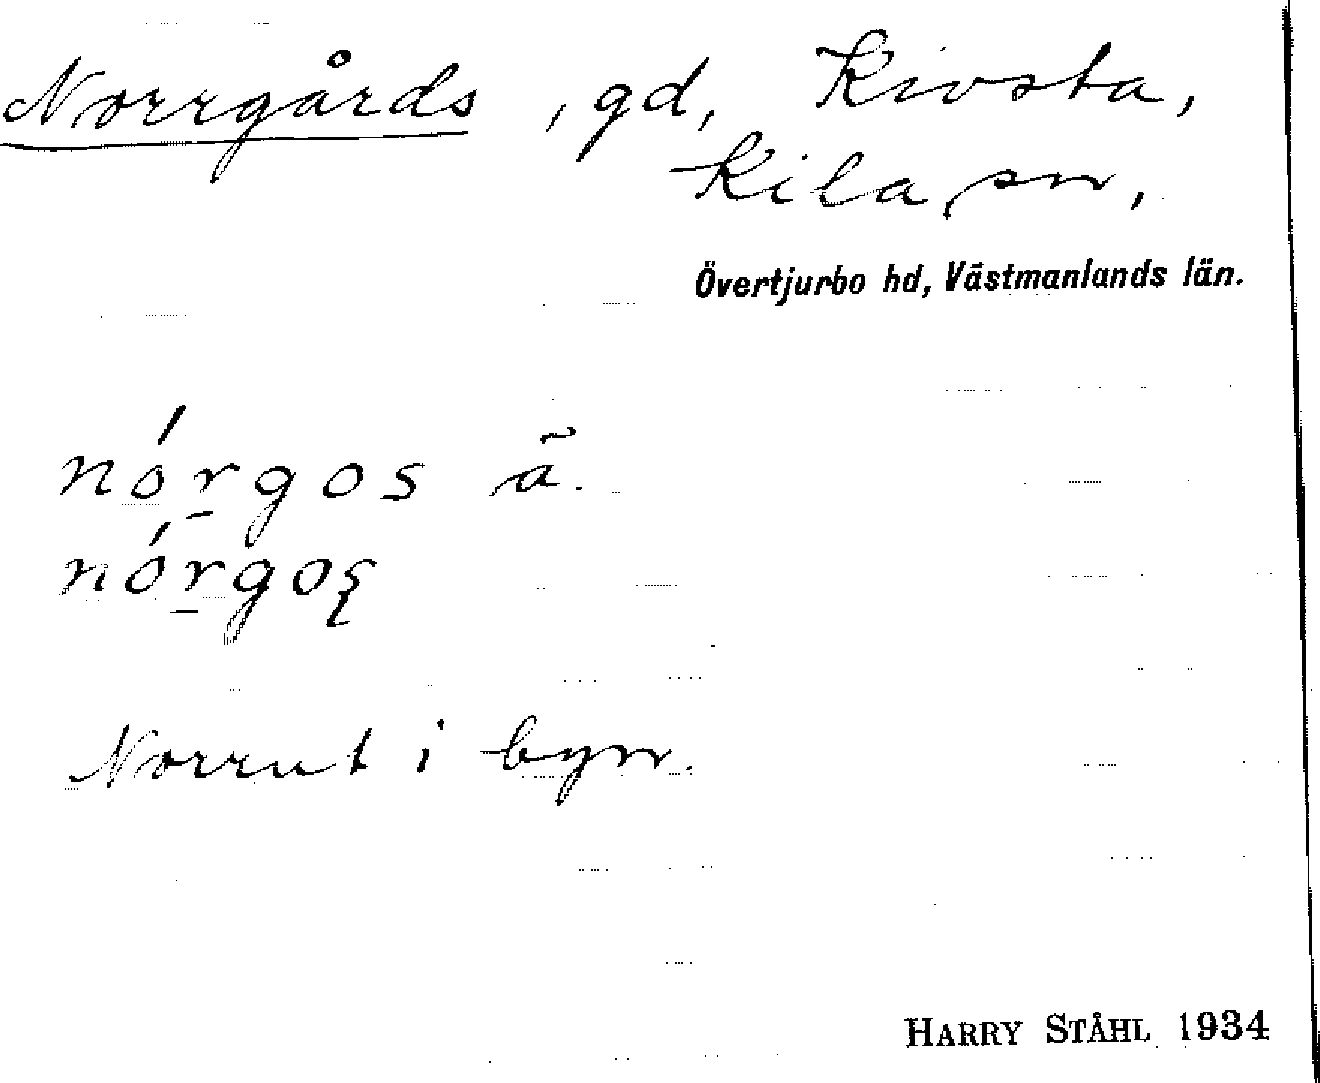 Norrgårds, gd, Kivsta,
Kila sn,
Övertjurbo hd, Västmanlands län.
nórgos ã.
nórgoș
Norrut i byn.
HARRY STÅHL 1934